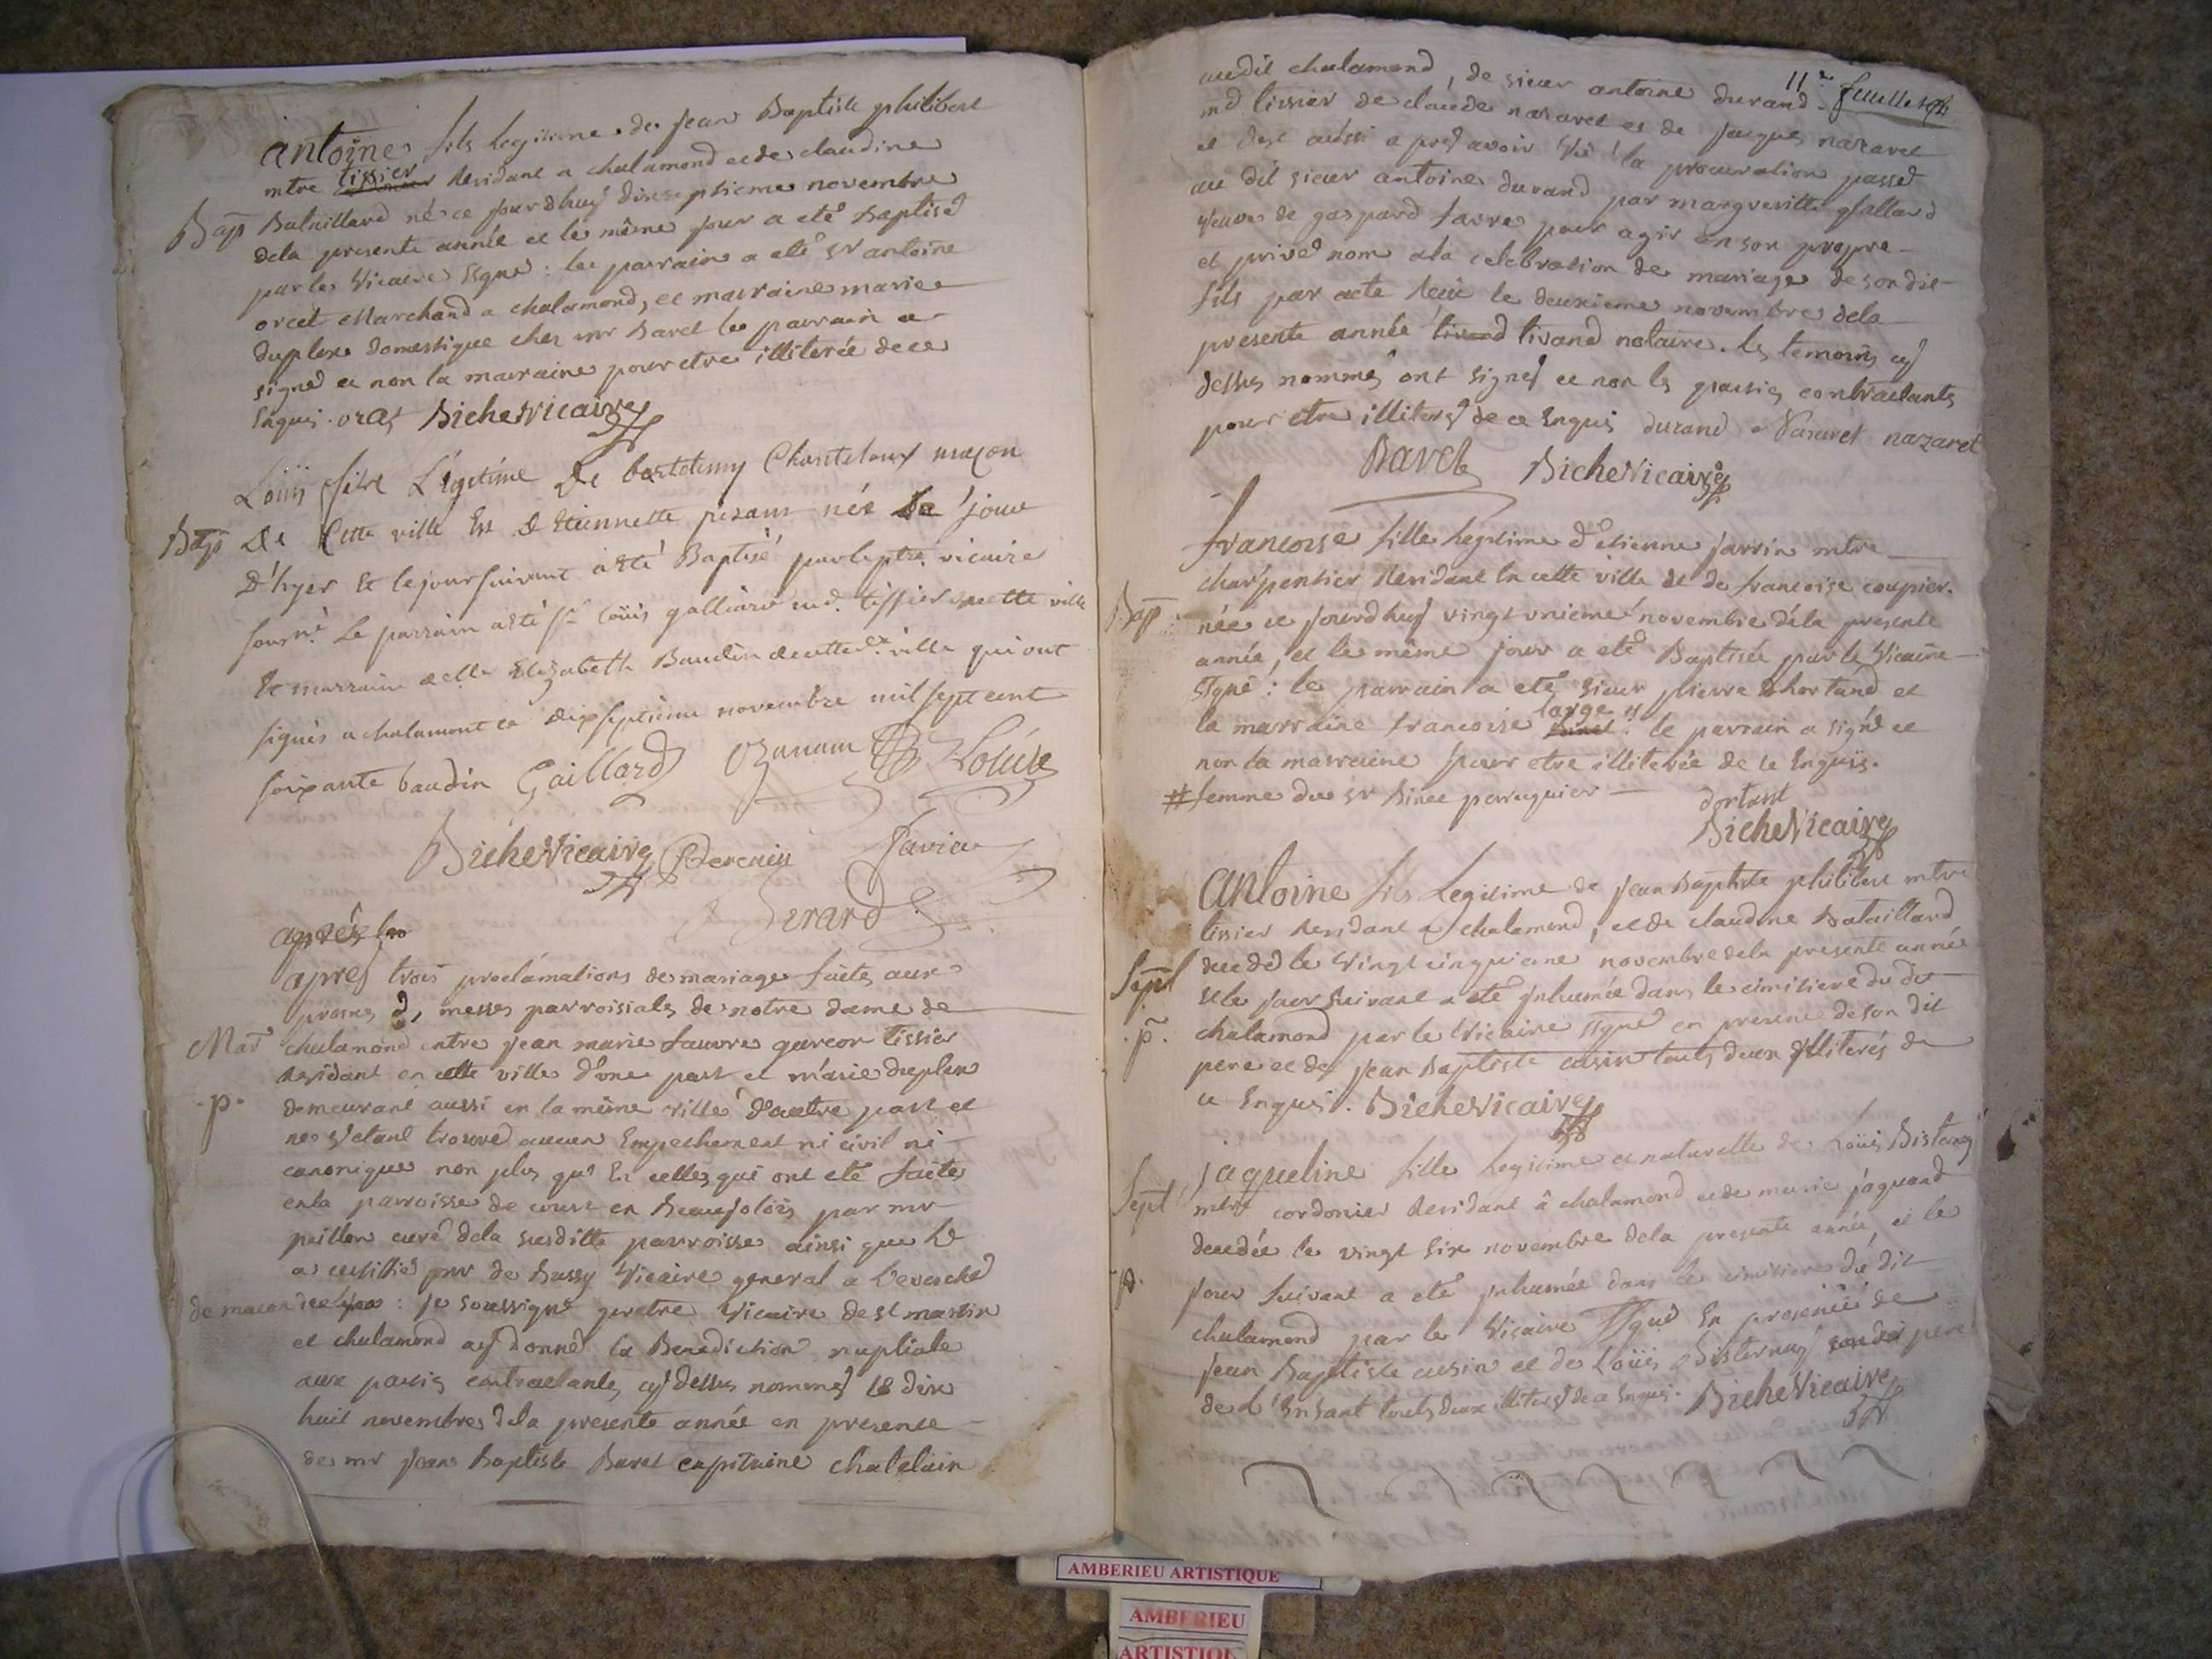 antoine fils Legitime de jean Baptiste philibert
mtre tissier Residant a chalamond et de claudine
Bap Bataillard né ce jourdhuy dixseptieme novembre
dela presente année et le même jour a eté Baptisé
par le Vicaire Sgné : le parrain a eté sr antoine
orcet Marchand a chalamond, et marraine marie
duplex domestique chez mr Baret le parrain a
signé et non la marraine pour etre illiterée de ce
Enquis. orcet Biche Vicaire
Louis fils Légitime De bartelemy Chanteloux maçon
Bap De Cette ville Et D Etiennette pisam né Le jour
D'hyer Et le jour suivant a Eté Baptisé par le ptre vicaire
soussné Le parrain a eté sr Louis galliard md. tissier en cette ville
Et marraine delle Elizabeth Baudin de cette d. ville qui ont
signés a chalamont ce dixseptieme novembre mil sept cent
soixante baudin Gaillard Ozanam
Biche Vicaire Favier
Girard
après
apres trois proclamations de mariage faites aux
prosnes d, messes parroissiales de notre dame de
Mar chalamond entre jean marie fauvre garcon tissier
Residant en cette ville d'une part et marie duplex
.p. demeurant aussi en la même ville d'autre part et
ne s'etant trouvé aucun Empechement ni civil ni
canonique non plus qu'En celles qui ont eté faites
en la parroisse de cours en Beaujolois par mr
peillon curé dela susditte parroisse ainsi que Le
a certifié mr de Bussy Vicaire general a l'evesché
de macon : je soussigné pretre Vicaire de st martin
et chalamond ay donné la Benediction nuptiale
aux parties contractantes cy dessus nommés le dix
huit novembre dela presente année en presence
de mr jean Baptiste Baret capitaine chatelain
11e feuillet
audit chalamond, de sieur antoine durand
md tissier de claude nazaret et de jacques nazaret
et c'est aussi apres avoir Vû la procuration passé
au dit sieur antoine durand par margueritte
veuve de gaspard favre pour agir en son propre
et privé nom a la celebration de mariage de son dit
fils par acte Reçu le deuxieme novembre dela
presente année tivand tivand notaire. les temoins cy
dessus nommés ont signés et non les parties contractantes
pour etre illiterés de ce Enquis durand Nazaret nazaret
Baret Biche Vicaire
francoise fille Legitime d'etienne jarrin mtre
charpentier Residant En cette ville et de francoise coupier.
Bap née ce jourdhuy vingt unieme novembre dela presente
année, et le même jour a eté Baptisée par le Vicaire
sgné : le parrain a eté sieur pierre dhortand et
la marraine francoise large #. le parrain a signé et
non la marraine pour etre illiterée de ce Enquis.
# femme du sr Binet perruquier dortant
Biche Vicaire
Antoine fils Legitime de jean Baptiste philibert mtre
tissier Residant a chalamond, et de claudine Bataillard
Sepul decedé le Vingt cinquieme novembre dela presente année
et le jour suivant a eté Inhumée dans le cimitiere du dit
.p. chalamond par le Vicaire sgné en presence de son dit
pere et de jean Baptiste cusin touts deux Illiterés de
ce Enquis. Biche Vicaire
jaqueline fille Legitime et naturelle de Loüis Bisternay
Sepul mtre cordonier Residant à chalamond et de marie jaquand
decedée le vingt six novembre dela presente année, et le
.p. jour suivant a eté Inhumée dans le cimitiere du dit
chalamond par le Vicaire Sgné En presence de
jean Baptiste cusin et de Loüis Bisternay pere
de L'Enfant touts deux illiterés de ce Enquis. Biche Vicaire
AMBERIEU ARTISTIQUE
AMBERIEU
ARTISTIQUE